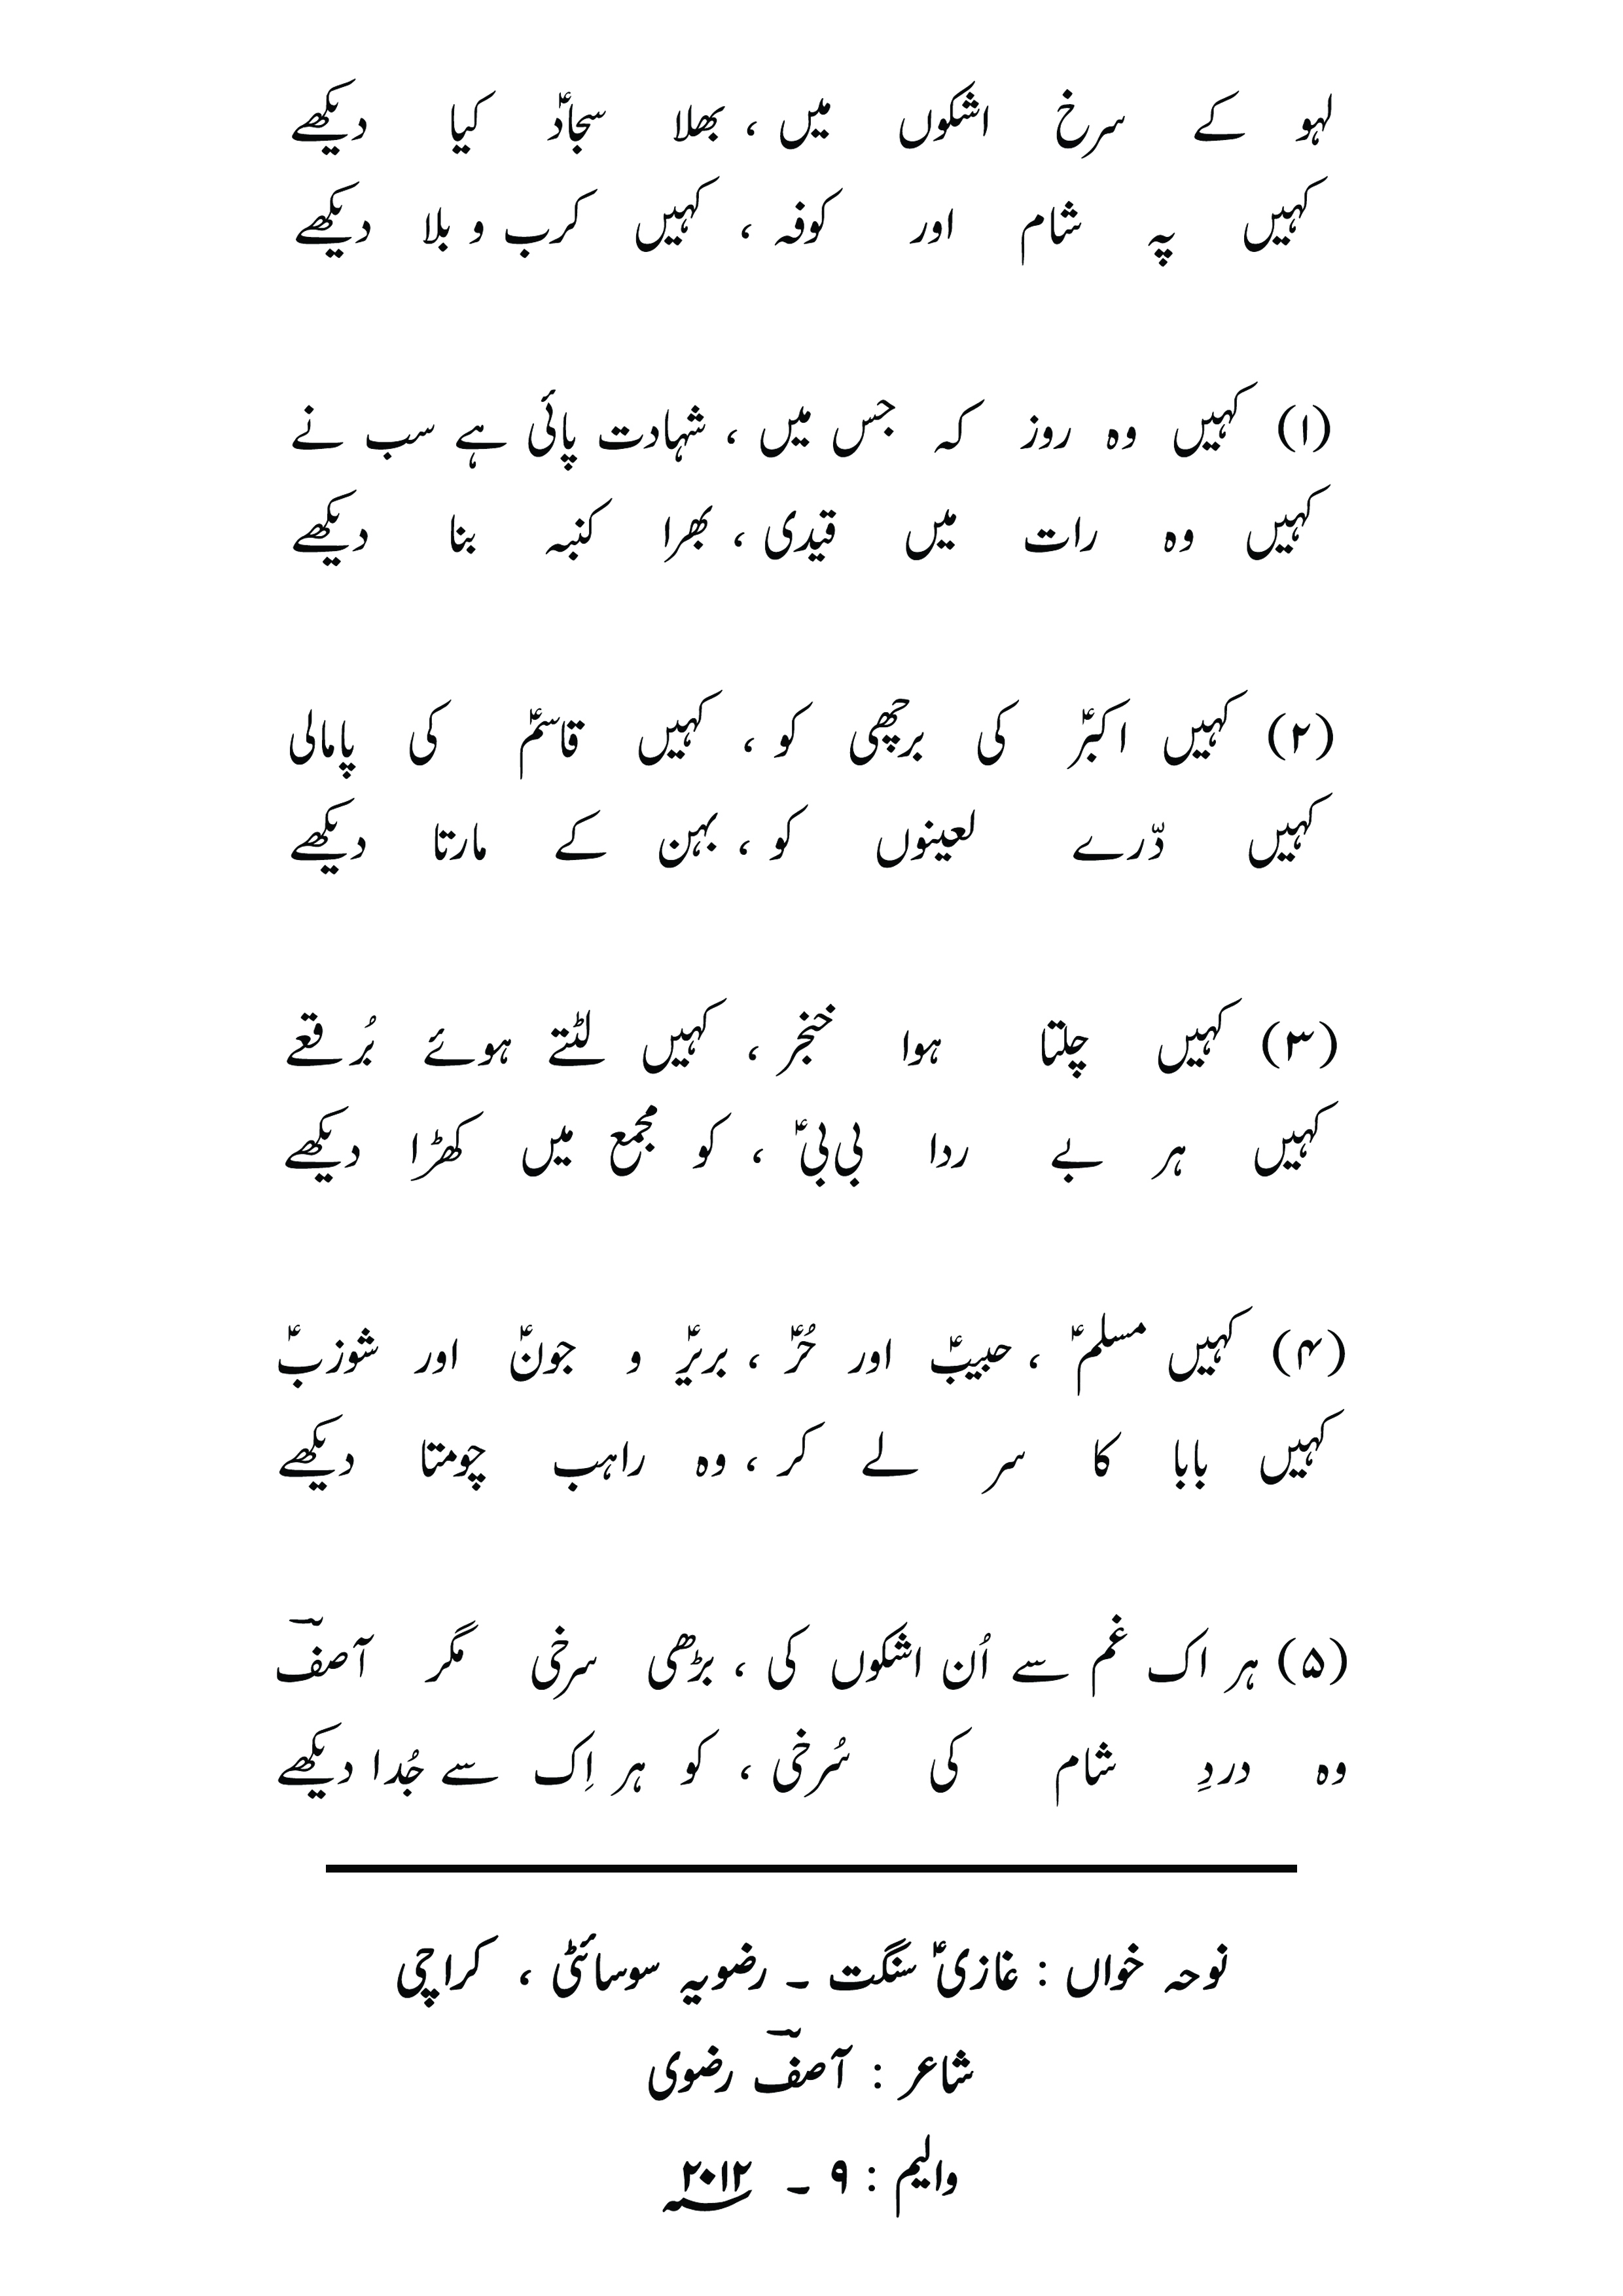 لہو کے سرخ اشکوں میں ، بھلا سجادؑ کیا دیکھے
کہیں پہ شام اور کوفہ ، کہیں کرب و بلا دیکھے
(۱) کہیں وہ روز کہ جس میں ، شہادت پائی ہے سب نے
کہیں وہ رات میں قیدی ، بھرا کنبہ بنا دیکھے
(۲) کہیں اکبرؑ کی برچھی کو ، کہیں قاسمؑ کی پامالی
کہیں دّرے لعینوں کو ، بہن کے مارتا دیکھے
(۳) کہیں چلتا ہوا خنجر ، کہیں لٹتے ہوئے بُرقعے
کہیں ہر بے ردا بی‌بیؑ ، کو مجمع میں کھڑا دیکھے
(۴) کہیں مسلمؑ ، حبیبؑ اور حُرؑ ، بریرؑ و جونؑ اور شوزبؑ
کہیں بابا کا سر لے کر ، وہ راہب چومتا دیکھے
(۵) ہر اک غم سے اُن اشکوں کی ، بڑھی سرخی مگر آصفؔ
وہ دردِ شام کی سُرخی ، کو ہر اِک سے جُدا دیکھے
نوحہ خواں : غازیؑ سنگت ۔ رضویہ سوسائٹی ، کراچی
شاعر : آصفؔ رضوی
والیم : ۹ ۔ ۲۰۱۲؁